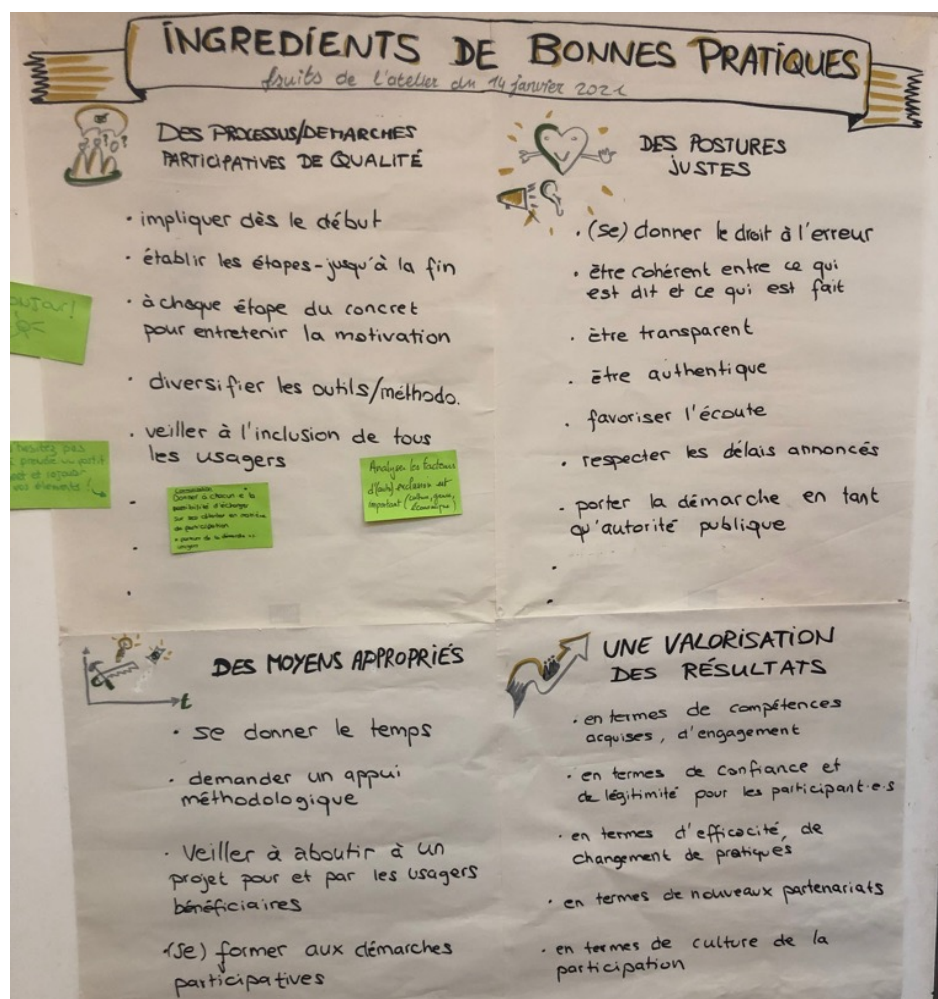 INGREDIENTS DE BONNES PRATIQUES
fruits de l'atelier du 14 janvier 2021
DES PROCESSUS/DEMARCHES
PARTICIPATIVES DE QUALITÉ
· impliquer dès le début
· établir les étapes - jusqu'à la fin
· à chaque étape du concret
pour entretenir la motivation
· diversifier les outils/méthodo.
· veiller à l'inclusion de tous
les usagers
Donner à chacun·e la
possibilité d'échanger
de participation
Analyser les facteurs
d'(auto) exclusion est
important (culture, genre,
économique)
DES POSTURES
JUSTES
· (se) donner le droit à l'erreur
· être cohérent entre ce qui
est dit et ce qui est fait
· être transparent
· être authentique
· favoriser l'écoute
· respecter les délais annoncés
· porter la démarche en tant
qu'autorité publique
DES MOYENS APPROPRIÉS
t
· se donner le temps
· demander un appui
méthodologique
· Veiller à aboutir à un
projet pour et par les usagers
bénéficiaires
· (se) former aux démarches
participatives
UNE VALORISATION
DES RÉSULTATS
· en termes de compétences
acquises, d'engagement
· en termes de confiance et
de légitimité pour les participant·e·s
· en termes d'efficacité, de
changement de pratiques
· en termes de nouveaux partenariats
· en termes de culture de la
participation